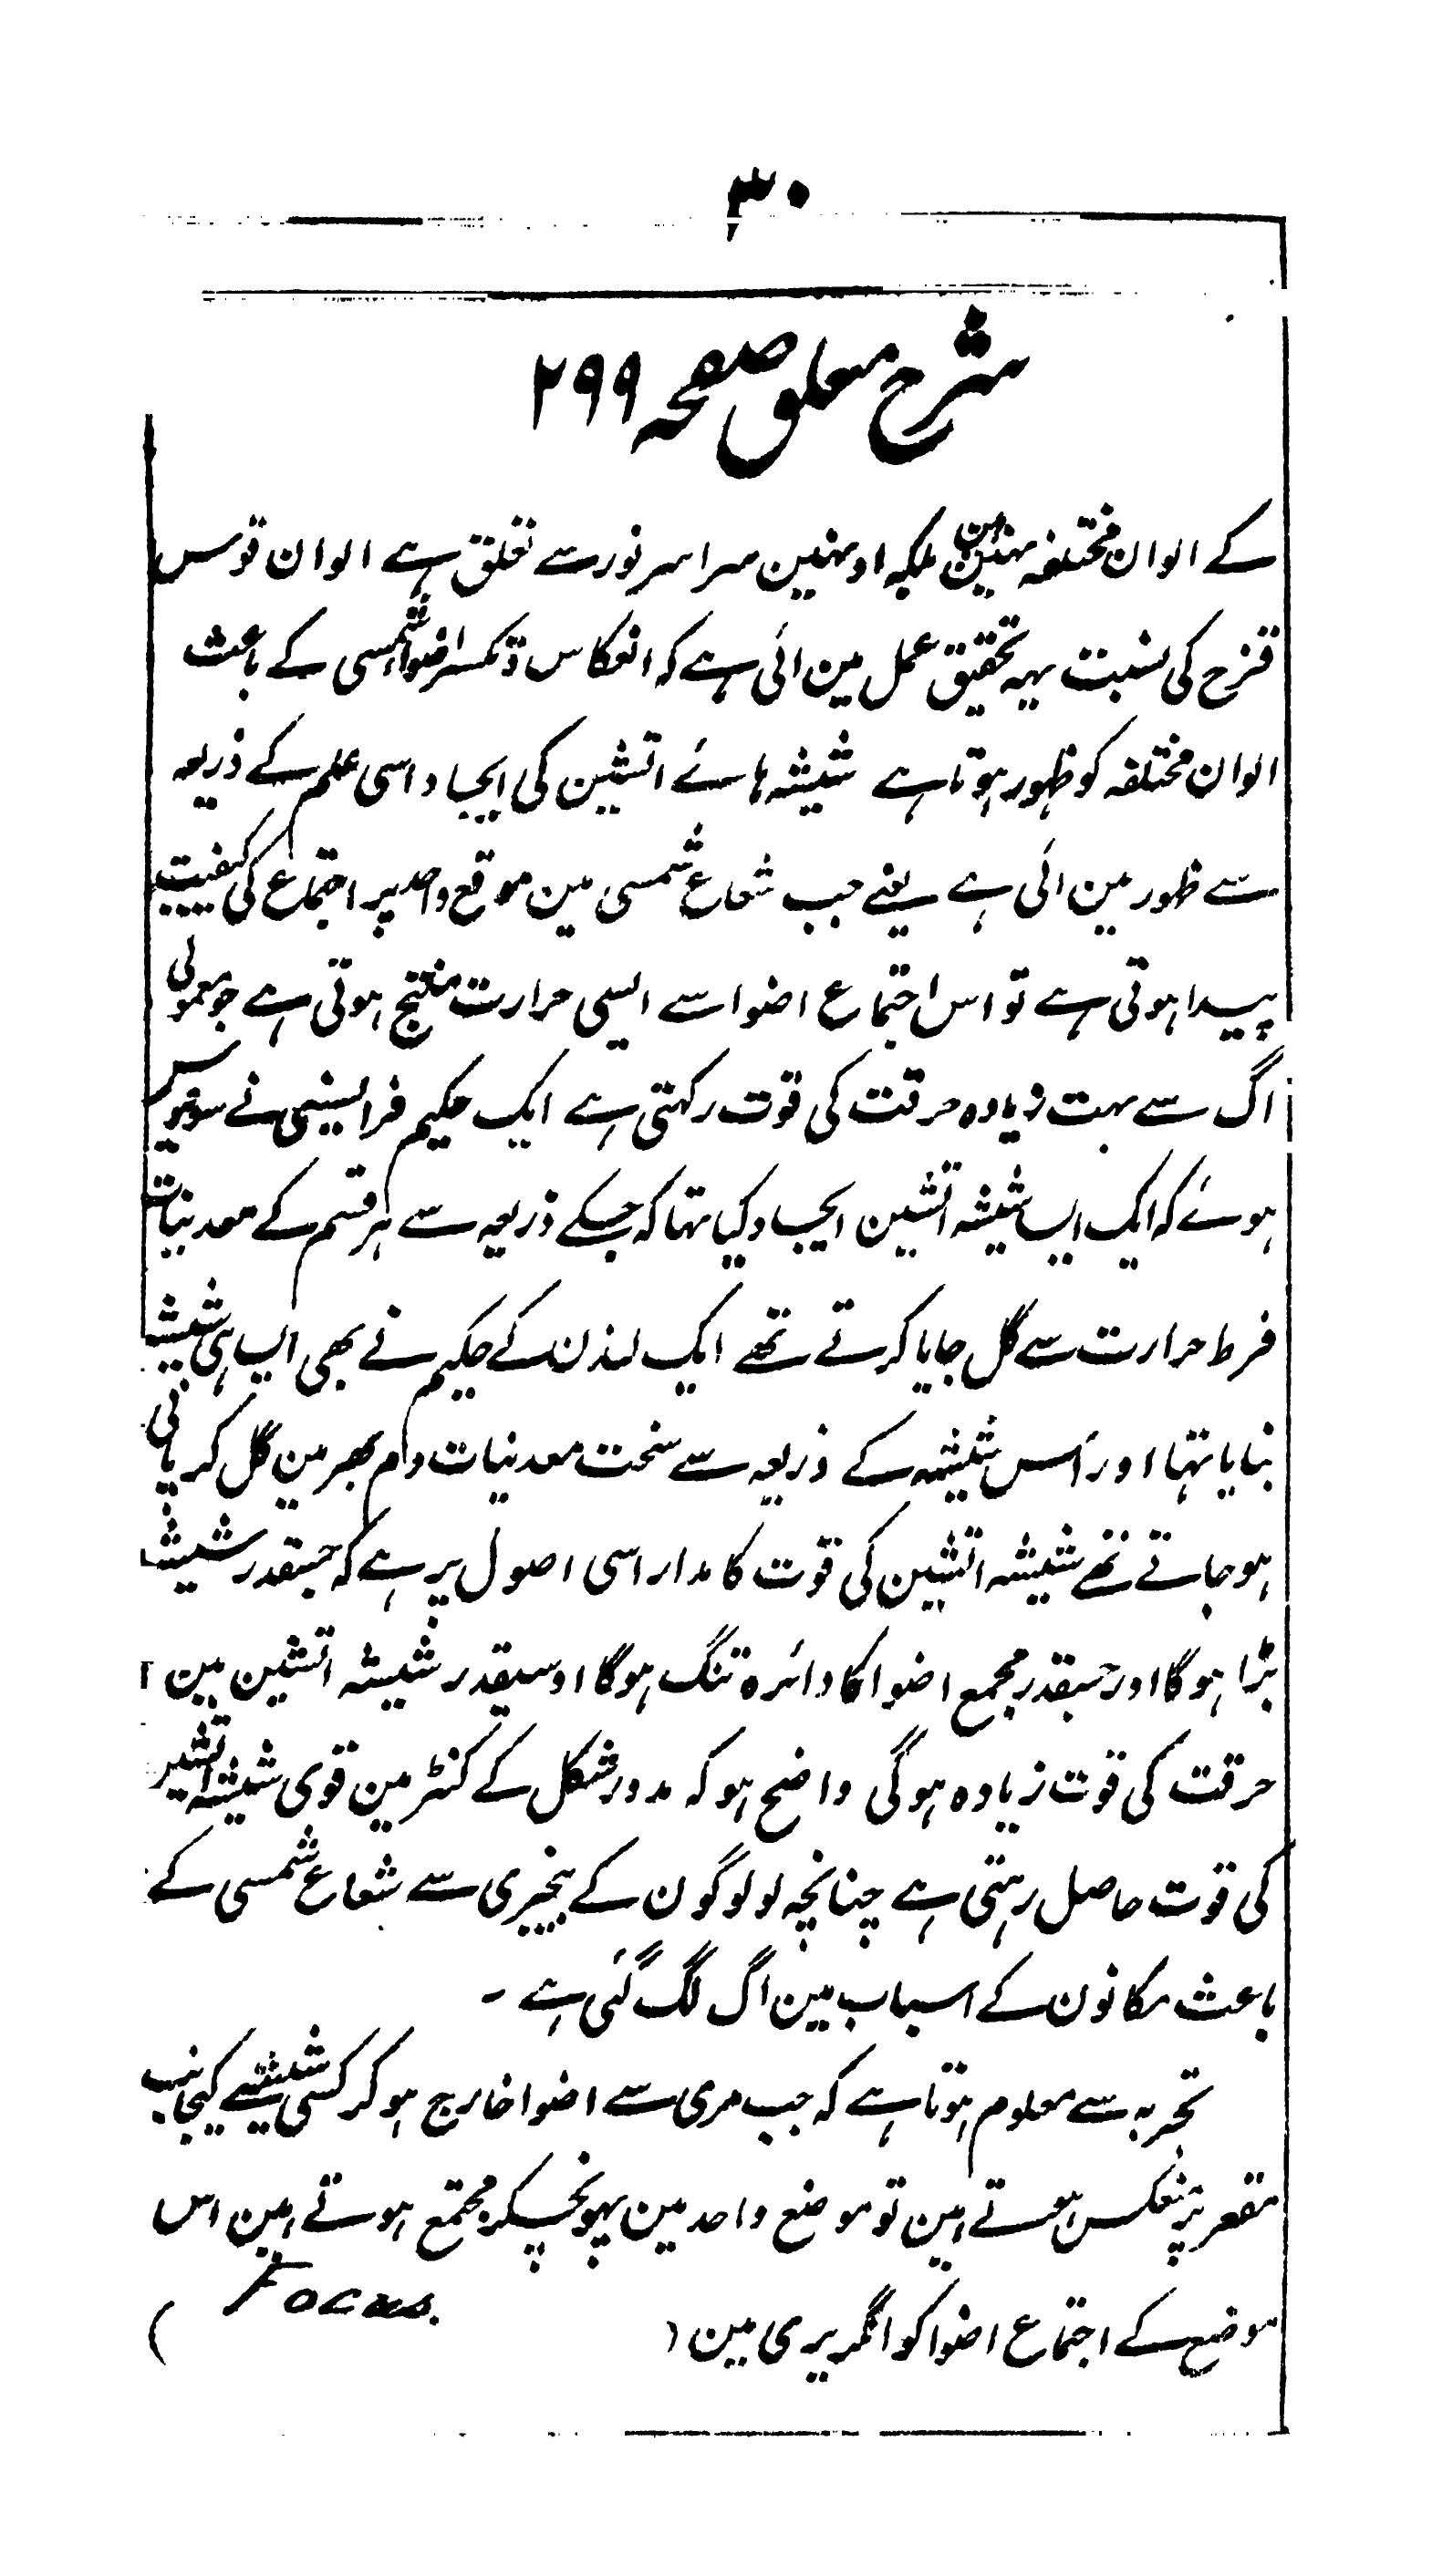 ۳۰
شرح متعلق صفحہ ۲۹۹
کے الوان مختلفہ نہین ہین بلکہ اونہین سراسر نور سے تعلق ہے الوان قوس
قزح کی نسبت یہہ تحقیق عمل مین ائی ہے کہ انعکاس و تکسر اضوا شمسی کے باعث
الوان مختلفہ کو ظہور ہوتا ہے شیشہ ہائے اتشین کی ایجاد اسی علم کے ذریعہ
سے ظہور مین ائی ہے یعنے جب شعاع شمسی مین موقع واحد پر اجتماع کی کیفیت
پیدا ہوتی ہے تو اس اجتماع اضوا سے ایسی حرارت منتج ہوتی ہے جو معمولی
اگ سے بہت زیادہ حرقت کی قوت رکہتی ہے ایک حکیم فرانسیسی نے سو برس
ہوئے کہ ایک ایسا شیشہ اتشین ایجاد کیا تہا کہ جسکے ذریعہ سے ہر قسم کے معدنیات
فرط حرارت سے گل جایا کرتے تھے ایک لندن کے حکیم نے بھی ایسا ہی شیشہ
بنایا تہا اور اُس شیشہ کے ذریعہ سے سخت معدنیات دم بھر مین گل کر پانی
ہو جاتے تھے شیشہ اتشین کی قوت کا مدار اسی اصول پر ہے کہ جسقدر شیشہ
بڑا ہوگا اور جسقدر مجمع اضوا کا دائرہ تنگ ہوگا اوسیقدر شیشہ اتشین مین
حرقت کی قوت زیادہ ہوگی واضح ہو کہ مدور شکل کے کنٹر مین قوی شیشہ اتشین
کی قوت حاصل رہتی ہے چنانچہ لوگون کے بیخبری سے شعاع شمسی کے
باعث مکانون کے اسباب مین اگ لگ گئی ہے ۔
تجربہ سے معلوم ہوتا ہے کہ جب مری سے اضوا خارج ہو کر کسی شیشے کیجانب
مقعر پر منعکس ہوتے ہین تو موضع واحد مین پہونچکر مجتمع ہوتے ہین اس
موضع کے اجتماع اضوا کو انگریزی مین ( Focus. )